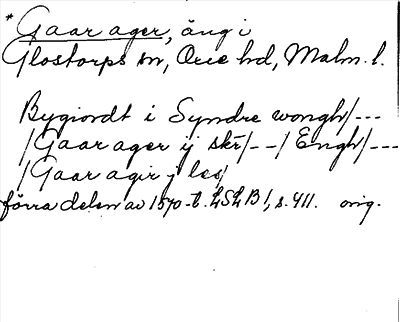 *Gaar ager, äng i
Glostorps sn, Oxie hd, Malm. l.
Bygiordt i Syndre wongh/---
/Gaar ager ij skr/--/Engh/---
/Gaar agir j les/
förra delen av 1570-t. LSLB 1, s. 411. orig.